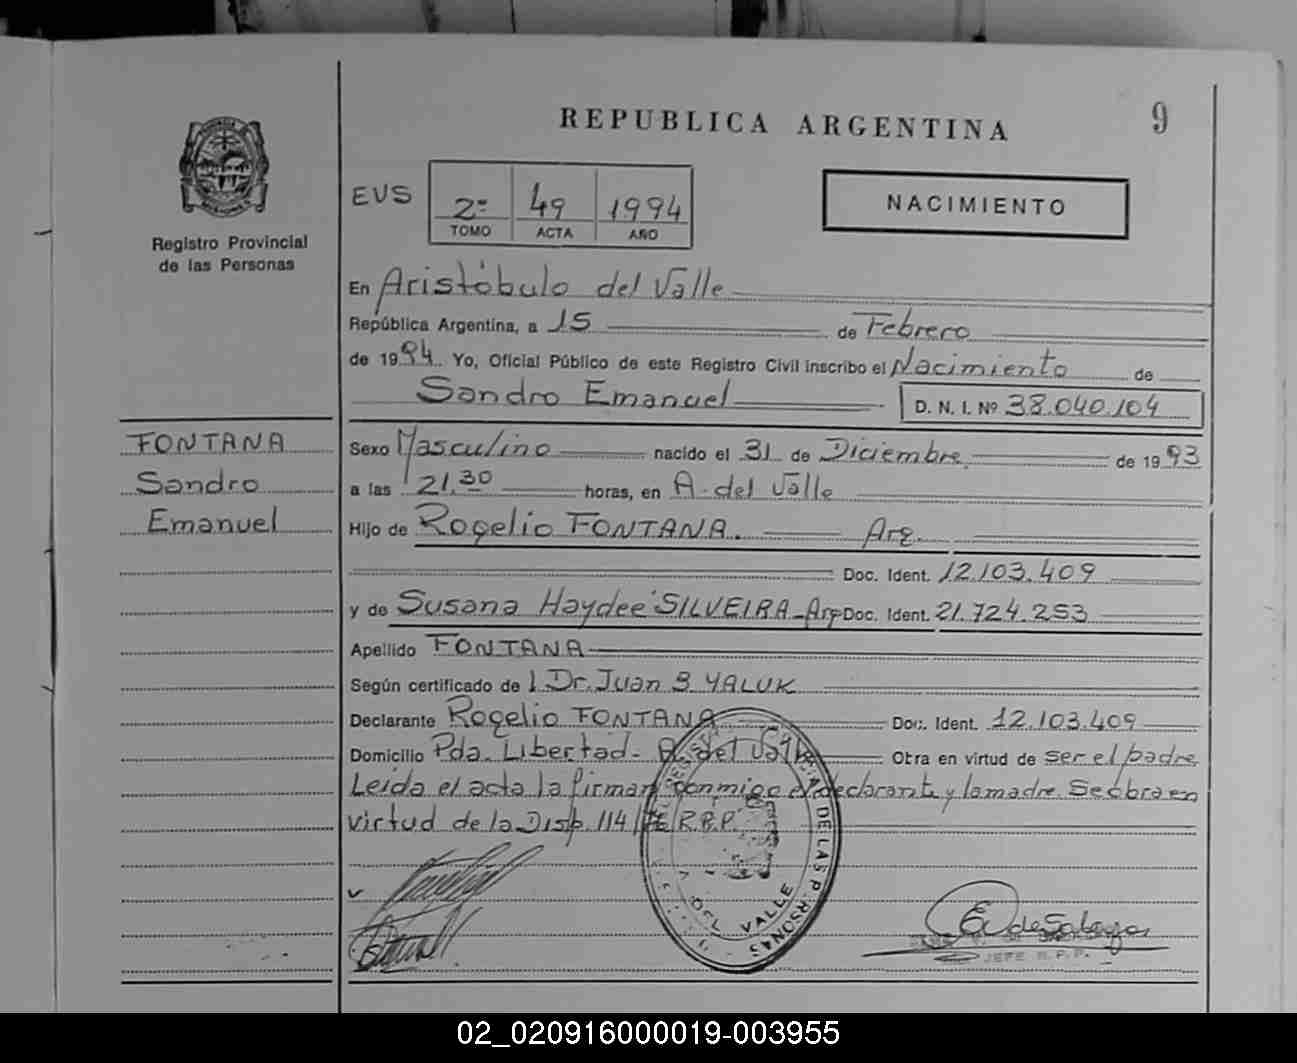 REPUBLICA ARGENTINA
9
Registro Provincial
de las Personas
EVS
2º 49 1994
TOMO ACTA AÑO
NACIMIENTO
En Aristóbulo del Valle
República Argentina, a 15 de Febrero
de 1994. Yo, Oficial Público de este Registro Civil inscribo el Nacimiento de
Sandro Emanuel D. N. I. Nº 38.040.104
FONTANA
Sandro
Emanuel
Sexo Masculino nacido el 31 de Diciembre de 1993
a las 21,30 horas, en A. del Valle
Hijo de Rogelio FONTANA. Arg.
Doc. Ident. 12.103.409
y de Susana Haydee SILVEIRA - Arg Doc. Ident. 21.724.253
Apellido FONTANA
Según certificado de Dr. Juan B. YALUK
Declarante Rogelio FONTANA Doc. Ident. 12.103.409
Domicilio Pda. Libertad - A. del Valle Obra en virtud de ser el padre
Leida el acta la firman conmigo el declarante y la madre. Se obra en
virtud de la Disp. 114 R.P.P.
DE LAS PERSONAS
DEL VALLE
JEFE R.P.P.
02_020916000019-003955